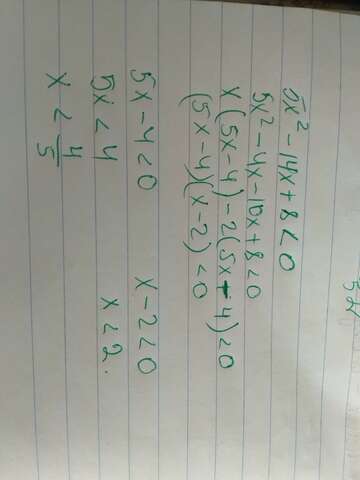 5x² - 14x + 8 < 0
5x² - 4x - 10x + 8 < 0
x(5x - 4) - 2(5x - 4) < 0
(5x - 4)(x - 2) < 0
5x - 4 < 0    x - 2 < 0
5x < 4    x < 2.
x < 4/5